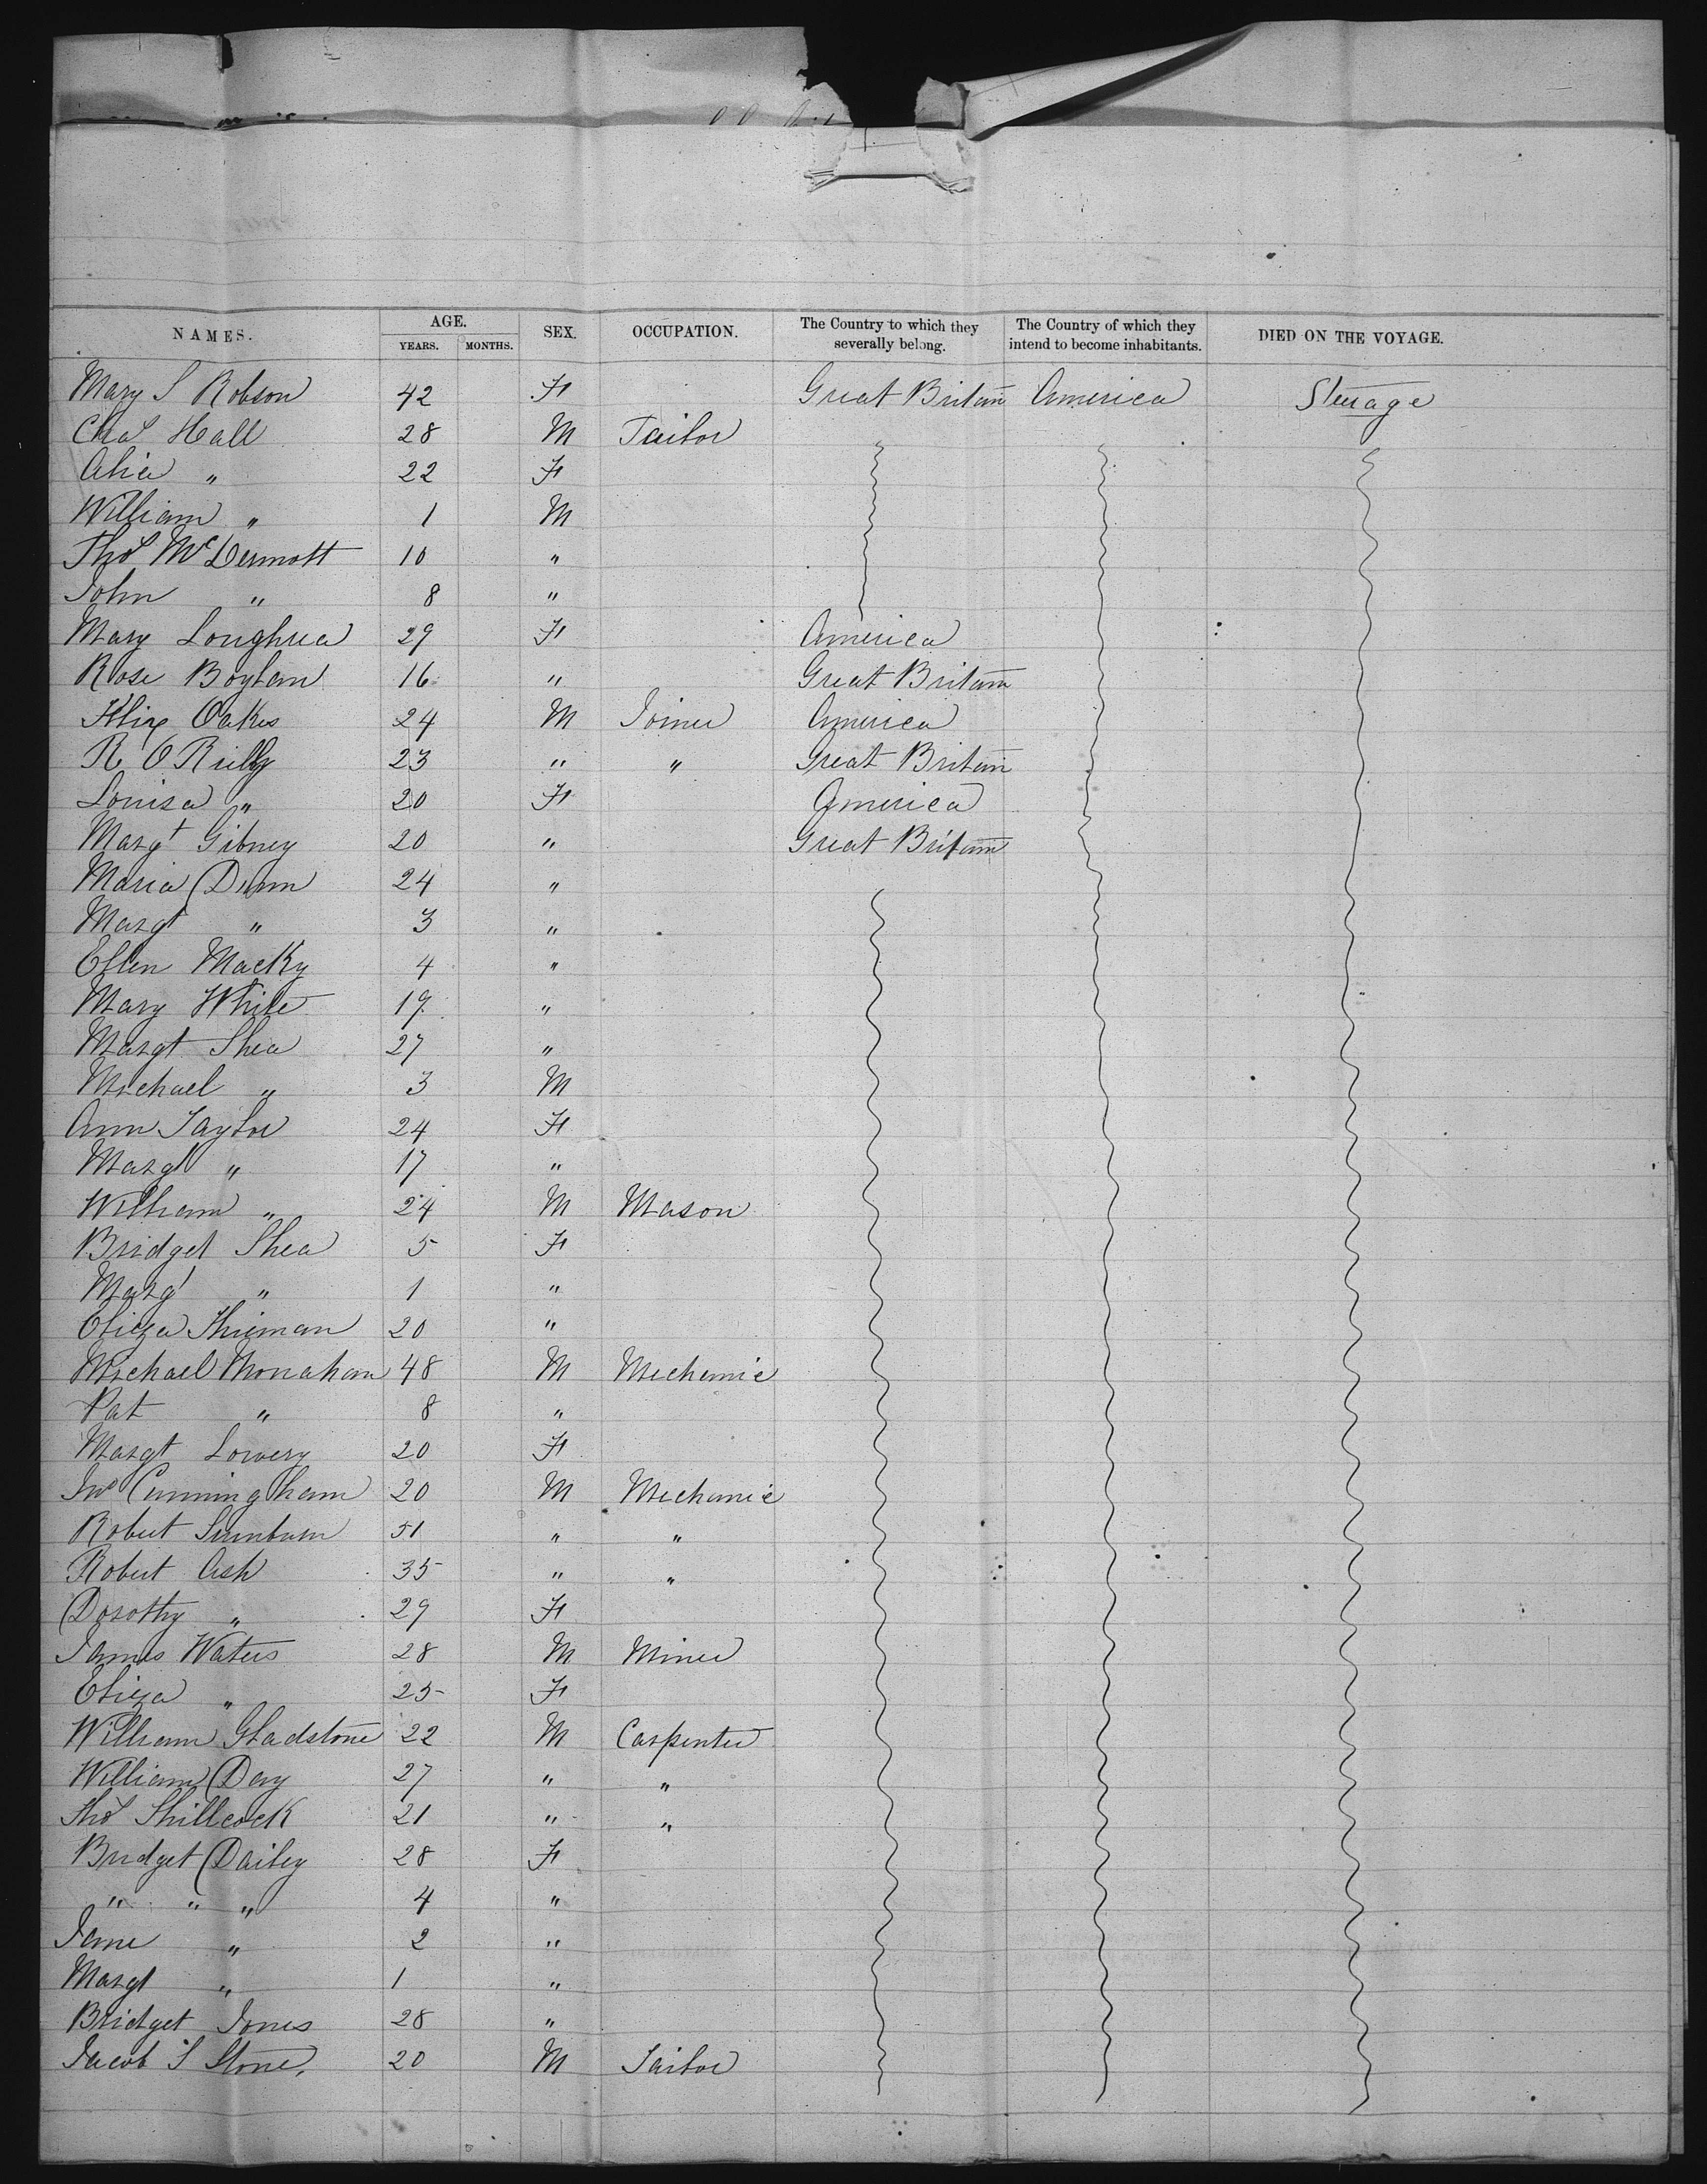 NAMES. AGE. SEX. OCCUPATION. The Country to which they severally belong. The Country of which they intend to become inhabitants. DIED ON THE VOYAGE.
YEARS. MONTHS.
Mary S Robson 42 F Great Britain America Steerage
Chas Hall 28 M Tailor
Alice " 22 F
William " 1 M
Thos McDermott 10 "
John " 8 "
Mary Loughrea 29 F America
Rose Boylan 16 " Great Britain
Oakes 24 M Joiner America
R O Reilly 23 " " Great Britain
Louisa " 20 F America
Margt Gibney 20 " Great Britain
Maria Dunn 24 "
Margt " 3 "
Ellen Macky 4 "
Mary White 19 "
Margt Shea 27 "
Michael " 3 M
Ann Taylor 24 F
Margt " 17 "
William " 24 M Mason
Bridget Shea 5 F
Margt " 1 "
Eliza 20 "
Michael Monahan 48 M Mechanic
Pat " 8 "
Margt Lowery 20 F
Jno Cunningham 20 M Mechanic
Robert 51 " "
Robert Ash 35 " "
Dorothy " 29 F
James Waters 28 M Miner
Eliza " 25 F
William Gladstone 22 M Carpenter
William Day 27 " "
Thos Shillcock 21 " "
Bridget Dailey 28 F
" " " 4 "
Jane " 2 "
Margt " 1 "
Bridget Jones 28 "
Jacob S Stone. 20 M Tailor